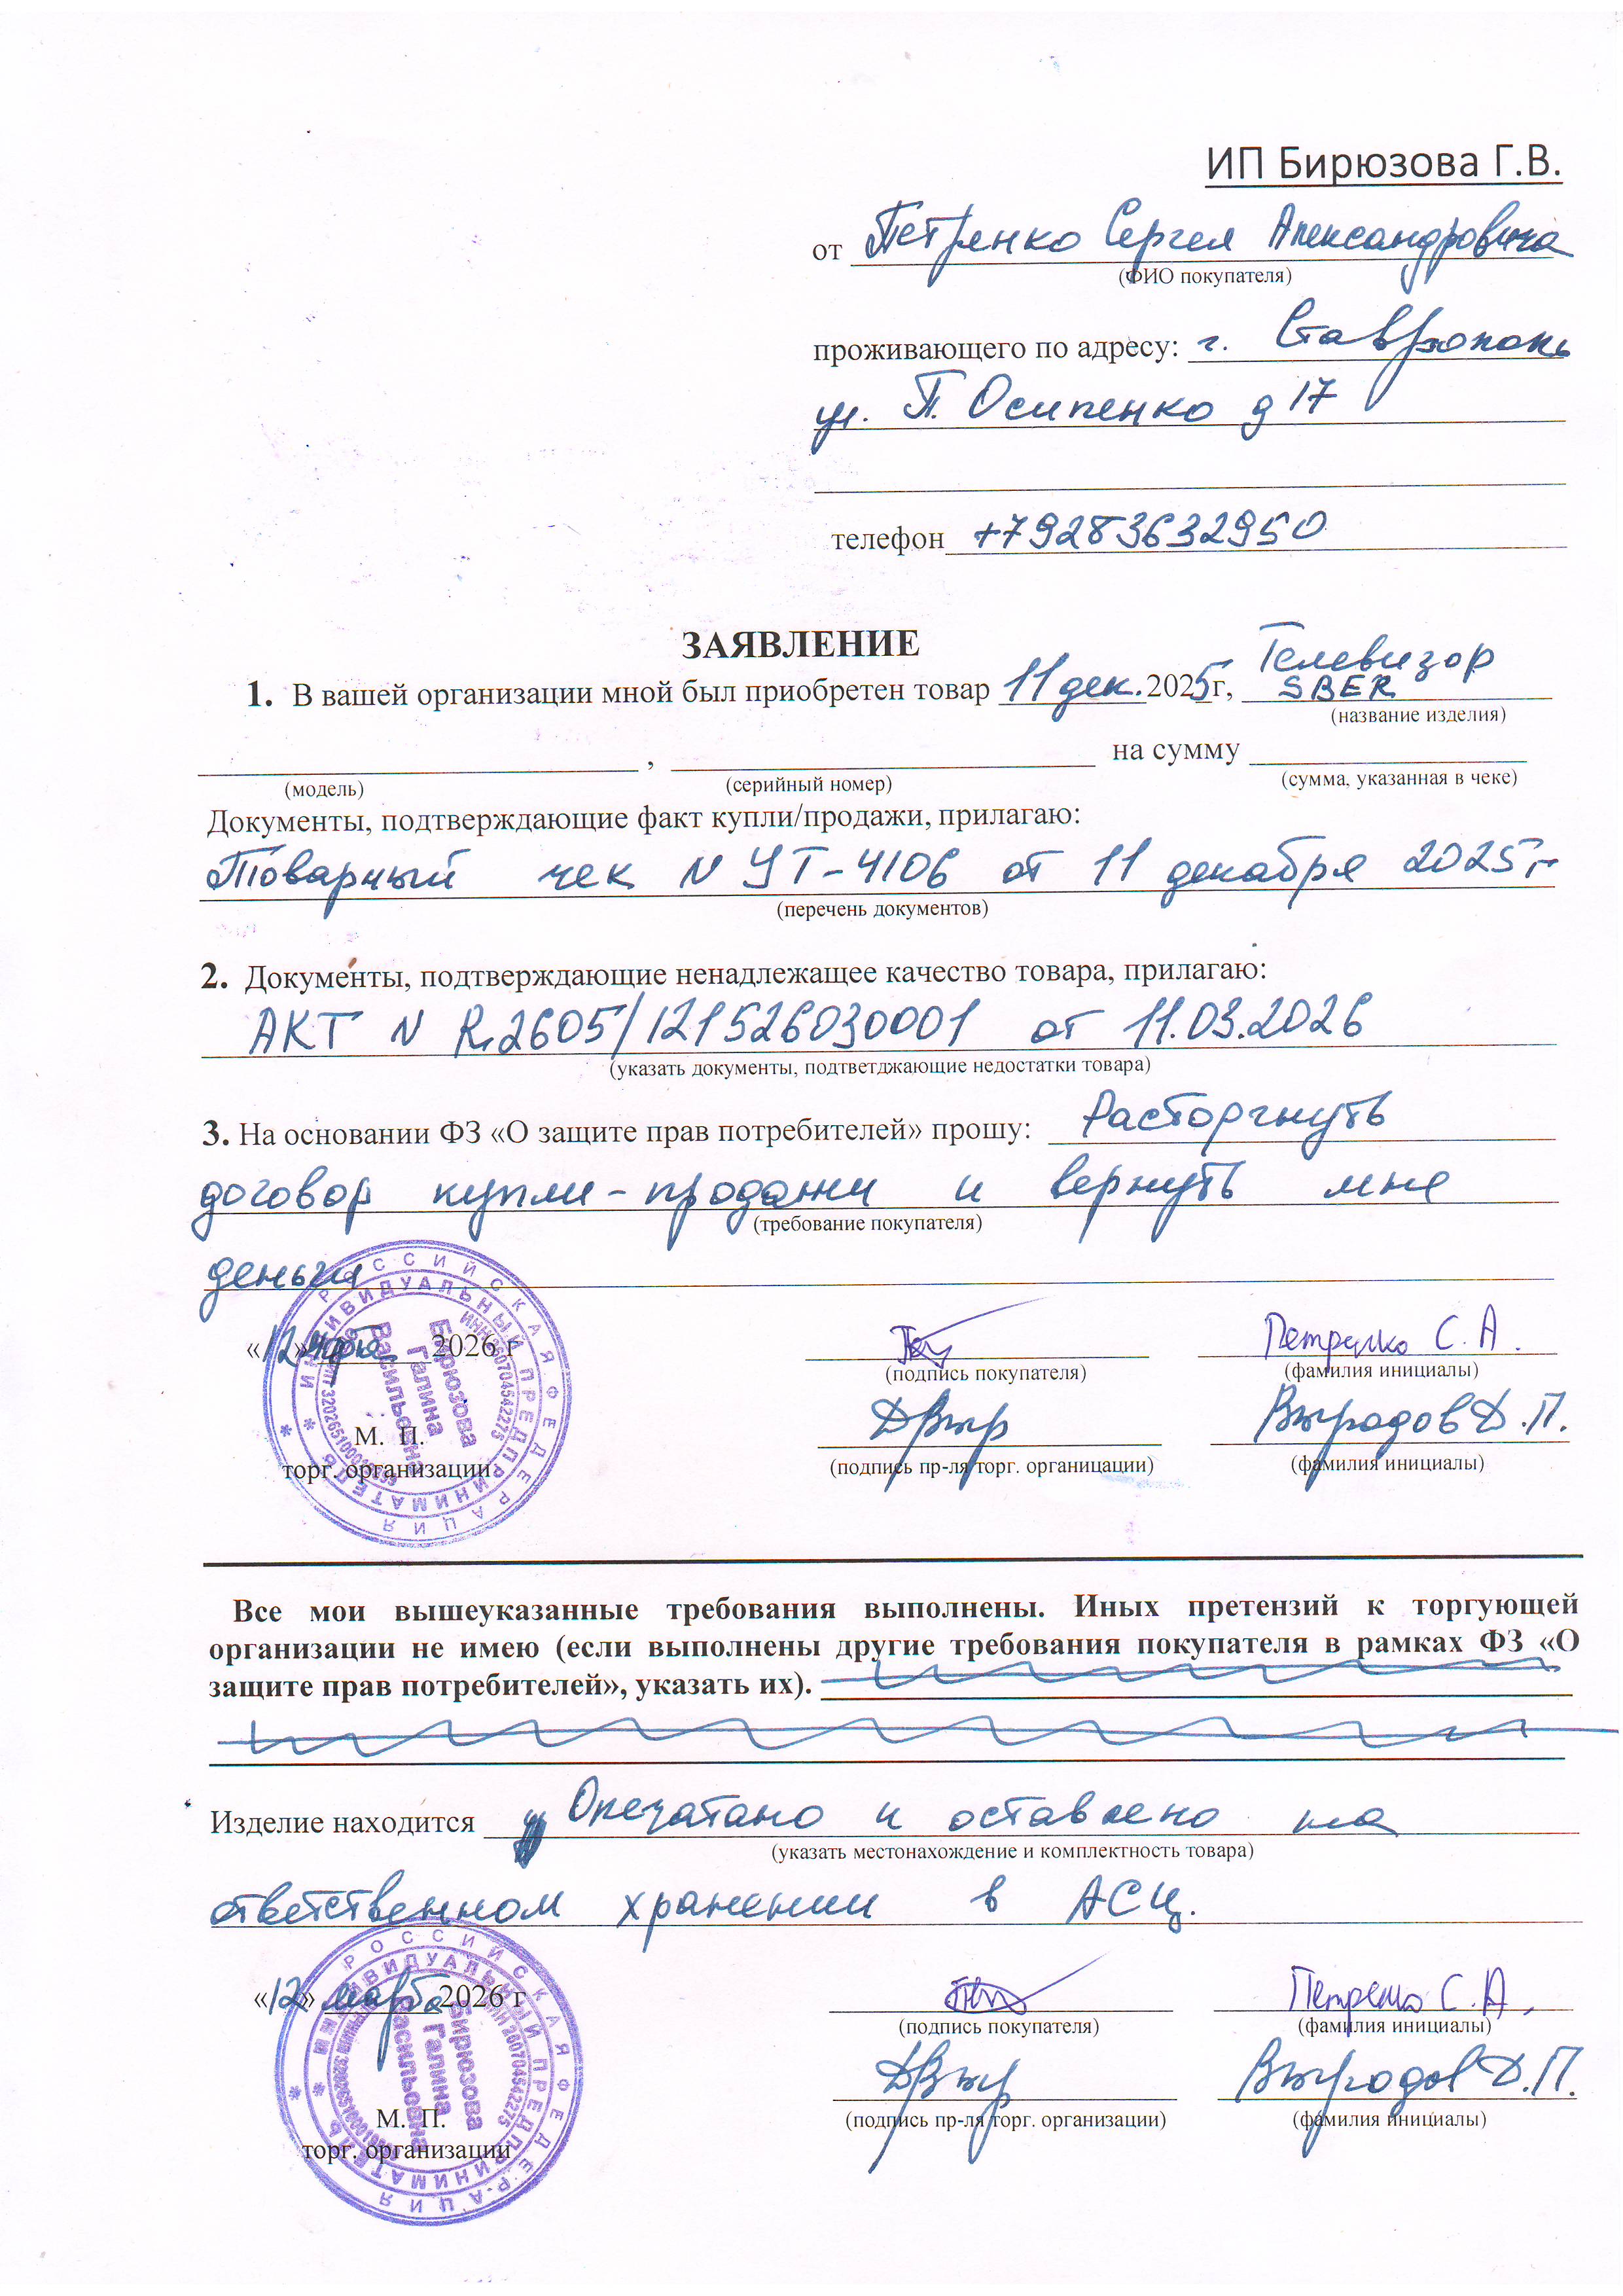 ИП Бирюзова Г.В.
от Петренко Сергея Александровича
(ФИО покупателя)
проживающего по адресу: г. Ставрополь
ул. П. Осипенко д 17
телефон +79283632950
ЗАЯВЛЕНИЕ
1. В вашей организации мной был приобретен товар 11 дек. 2025 г, Телевизор SBER
(название изделия)
, на сумму
(модель) (серийный номер) (сумма, указанная в чеке)
Документы, подтверждающие факт купли/продажи, прилагаю:
Товарный чек N УТ-4106 от 11 декабря 2025 г
(перечень документов)
2. Документы, подтверждающие ненадлежащее качество товара, прилагаю:
АКТ N R.2605/121526030001 от 11.03.2026
(указать документы, подтветджающие недостатки товара)
3. На основании ФЗ «О защите прав потребителей» прошу: Расторгнуть
договор купли-продажи и вернуть мне
(требование покупателя)
деньги
«12» марта 2026 г Петренко С. А.
(подпись покупателя) (фамилия инициалы)
Выродов Д.П.
М. П.
торг. организации (подпись пр-ля торг. органицации) (фамилия инициалы)
РОССИЙСКАЯ ФЕДЕРАЦИЯ
ИНДИВИДУАЛЬНЫЙ ПРЕДПРИНИМАТЕЛЬ
ИНН 260704542275
Бирюзова
Галина
Васильевна
Все мои вышеуказанные требования выполнены. Иных претензий к торгующей
организации не имею (если выполнены другие требования покупателя в рамках ФЗ «О
защите прав потребителей», указать их).
Изделие находится Опечатано и оставлено на
(указать местонахождение и комплектность товара)
ответственном хранении в АСЦ.
«12» марта 2026 г Петренко С. А.
(подпись покупателя) (фамилия инициалы)
Выродов Д.П.
М. П.
торг. организации (подпись пр-ля торг. организации) (фамилия инициалы)
РОССИЙСКАЯ ФЕДЕРАЦИЯ
ИНДИВИДУАЛЬНЫЙ ПРЕДПРИНИМАТЕЛЬ
ИНН 260704542275
Бирюзова
Галина
Васильевна